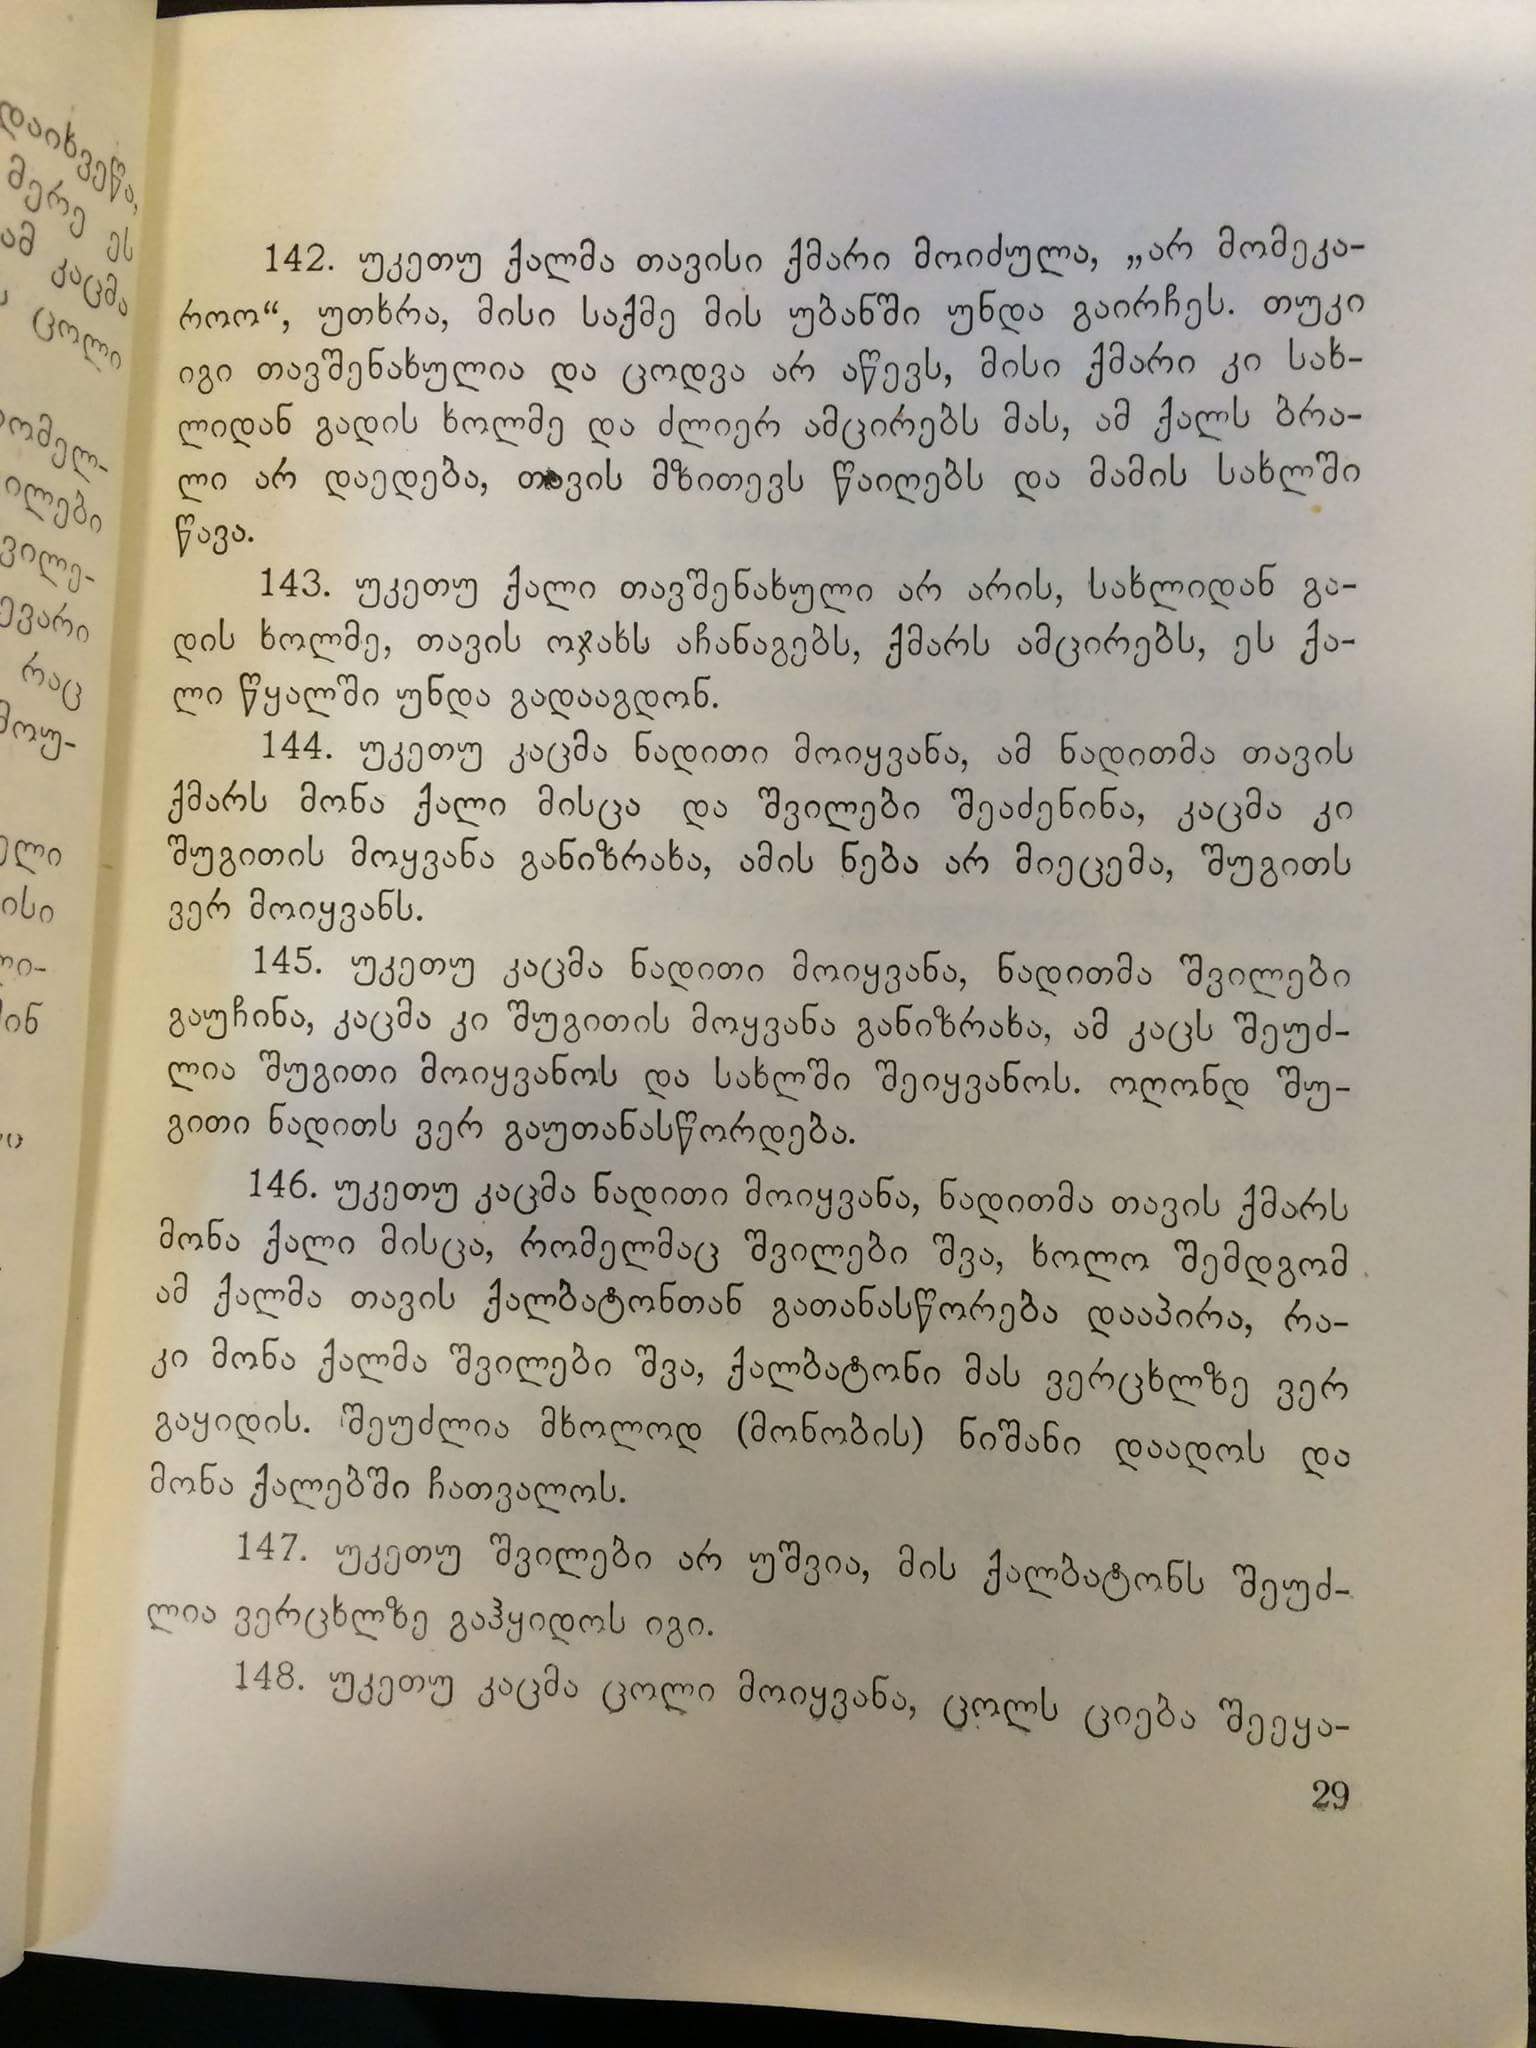 დაიხვეწა,
მერე ეს
ამ კაცმა
ცოლი
142. უკეთუ ქალმა თავისი ქმარი მოიძულა, „არ მომეკა-
როო“, უთხრა, მისი საქმე მის უბანში უნდა გაირჩეს. თუკი
იგი თავშენახულია და ცოდვა არ აწევს, მისი ქმარი კი სახ-
ლიდან გადის ხოლმე და ძლიერ ამცირებს მას, ამ ქალს ბრა-
ლი არ დაედება, თავის მზითევს წაიღებს და მამის სახლში
წავა.
143. უკეთუ ქალი თავშენახული არ არის, სახლიდან გა-
დის ხოლმე, თავის ოჯახს აჩანაგებს, ქმარს ამცირებს, ეს ქა-
ლი წყალში უნდა გადააგდონ.
144. უკეთუ კაცმა ნადითი მოიყვანა, ამ ნადითმა თავის
ქმარს მონა ქალი მისცა და შვილები შეაძენინა, კაცმა კი
შუგითის მოყვანა განიზრახა, ამის ნება არ მიეცემა, შუგითს
ვერ მოიყვანს.
145. უკეთუ კაცმა ნადითი მოიყვანა, ნადითმა შვილები
გაუჩინა, კაცმა კი შუგითის მოყვანა განიზრახა, ამ კაცს შეუძ-
ლია შუგითი მოიყვანოს და სახლში შეიყვანოს. ოღონდ შუ-
გითი ნადითს ვერ გაუთანასწორდება.
146. უკეთუ კაცმა ნადითი მოიყვანა, ნადითმა თავის ქმარს
მონა ქალი მისცა, რომელმაც შვილები შვა, ხოლო შემდგომ
ამ ქალმა თავის ქალბატონთან გათანასწორება დააპირა, რა-
კი მონა ქალმა შვილები შვა, ქალბატონი მას ვერცხლზე ვერ
გაყიდის. შეუძლია მხოლოდ (მონობის) ნიშანი დაადოს და
მონა ქალებში ჩათვალოს.
147. უკეთუ შვილები არ უშვია, მის ქალბატონს შეუძ-
ლია ვერცხლზე გაჰყიდოს იგი.
148. უკეთუ კაცმა ცოლი მოიყვანა, ცოლს ციება შეეყა-
29